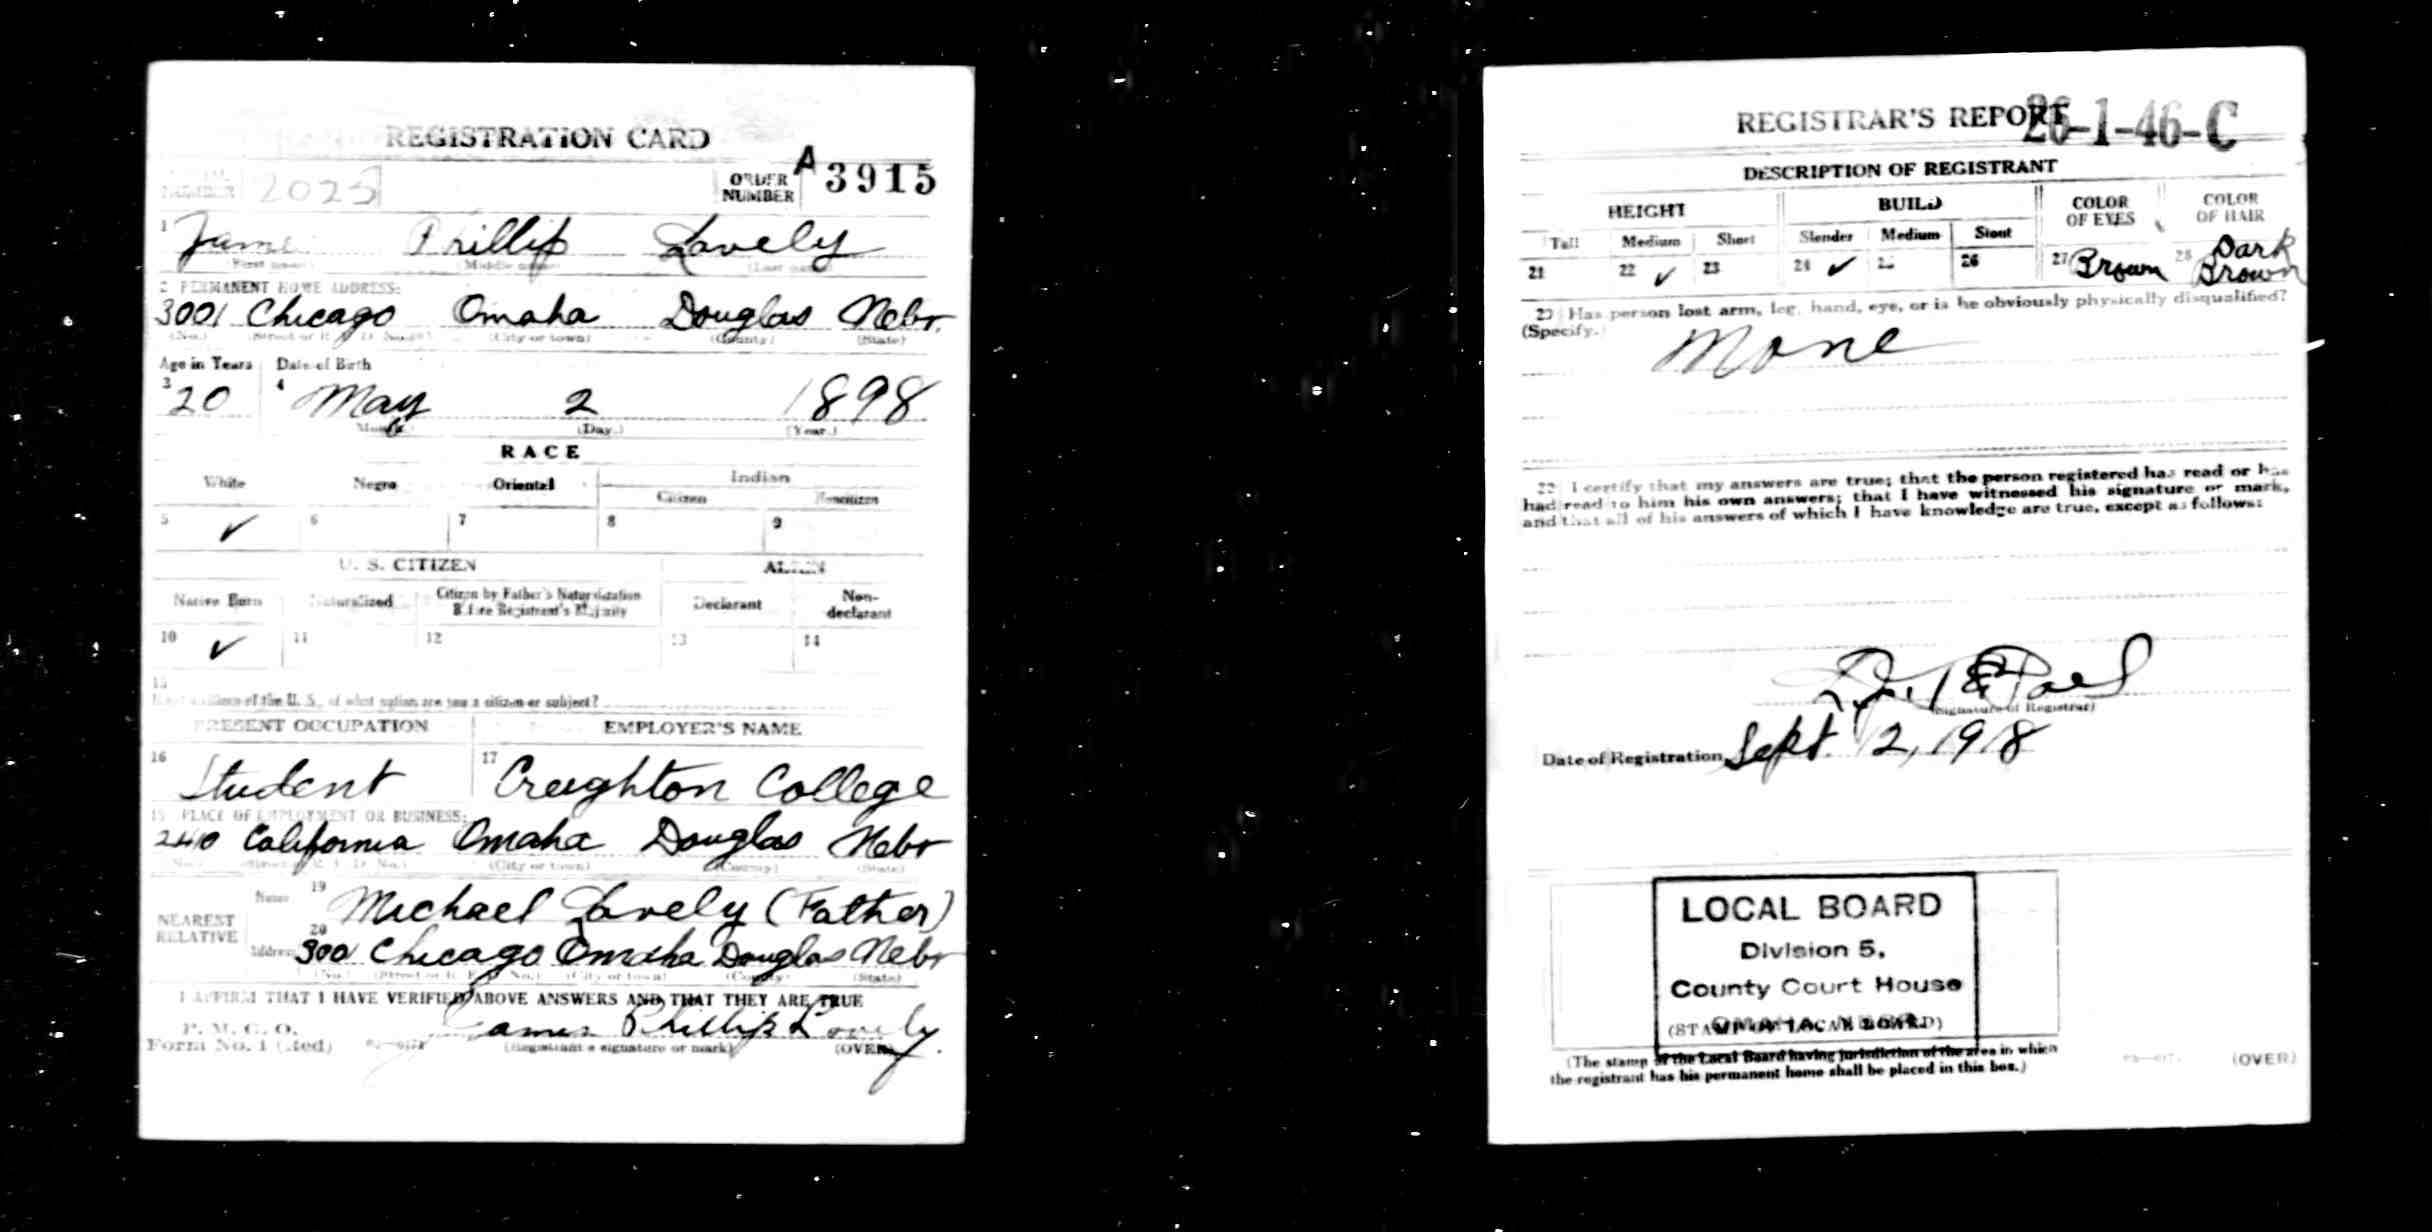 REGISTRATION CARD
NUMBER 2025 ORDER NUMBER A 3915
1 James Phillip Lovely
(First name) (Middle name) (Last name)
2 PERMANENT HOME ADDRESS:
3001 Chicago Omaha Douglas Nebr.
(No.) (Street or R. F. D. No.) (City or town) (County) (State)
Age in Years Date of Birth
3 20 4 May 2 1898
(Month.) (Day.) (Year.)
RACE
White Negro Oriental Indian
Citizen Noncitizen
5 ✓ 6 7 8 9
U. S. CITIZEN ALIEN
Native Born Naturalized Citizen by Father's Naturalization Before Registrant's Majority Declarant Non-declarant
10 ✓ 11 12 13 14
15
If not a citizen of the U. S., of what nation are you a citizen or subject?
PRESENT OCCUPATION EMPLOYER'S NAME
16 Student 17 Creighton College
PLACE OF EMPLOYMENT OR BUSINESS:
California Omaha Douglas Nebr
(No.) (Street or R. F. D. No.) (City or town) (County) (State)
NEAREST RELATIVE
Name 19 Michael Lovely (Father)
Address 20 3001 Chicago Omaha Douglas Nebr
(No.) (Street or R. F. D. No.) (City or town) (County) (State)
I AFFIRM THAT I HAVE VERIFIED ABOVE ANSWERS AND THAT THEY ARE TRUE
P. M. G. O.
Form No. 1 (Red) James Phillip Lovely
(Registrant's signature or mark) (OVER)
REGISTRAR'S REPORT 26-1-46-C
DESCRIPTION OF REGISTRANT
HEIGHT BUILD COLOR OF EYES COLOR OF HAIR
Tall Medium Short Slender Medium Stout
21 22 ✓ 23 24 ✓ 25 26 27 Brown 28 Dark Brown
29 Has person lost arm, leg, hand, eye, or is he obviously physically disqualified?
(Specify.)
None
I certify that my answers are true; that the person registered has read or has
had read to him his own answers; that I have witnessed his signature or mark,
and that all of his answers of which I have knowledge are true, except as follows:
(Signature of Registrar)
Date of Registration Sept. 12, 1918
LOCAL BOARD
Division 5,
County Court House
OMAHA, NEBR.
(STAMP OF LOCAL BOARD)
(The stamp of the Local Board having jurisdiction of the area in which
the registrant has his permanent home shall be placed in this box.)
(OVER)